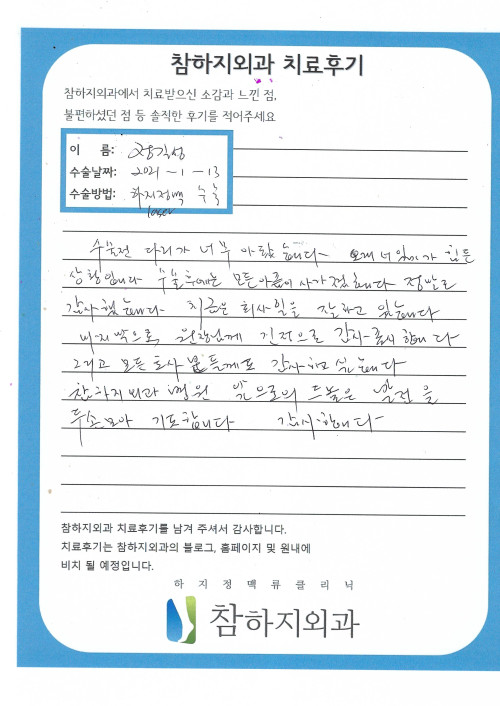 참하지외과 치료후기
참하지외과에서 치료받으신 소감과 느낀 점,
불편하셨던 점 등 솔직한 후기를 적어주세요
이 름:
수술날짜: 2021-1-13
수술방법: 하지정맥 수술
laser
수술전 다리가 너무 아팠습니다 오래 서 있기가 힘든
상황입니다 수술후에는 모든아픔이 사가졌습니다 정말로
감사했습니다 지금은 회사일을 잘하고 있습니다
마지막으로 원장님께 진정으로 감사 합니다
그리고 모든 분들께도 감사하고 싶습니다
참하지외과 병원 앞으로의 드높은 발전을
두손모아 기도합니다 감사합니다
참하지외과 치료후기를 남겨 주셔서 감사합니다.
치료후기는 참하지외과의 블로그, 홈페이지 및 원내에
비치 될 예정입니다.
하지정맥류클리닉
참하지외과